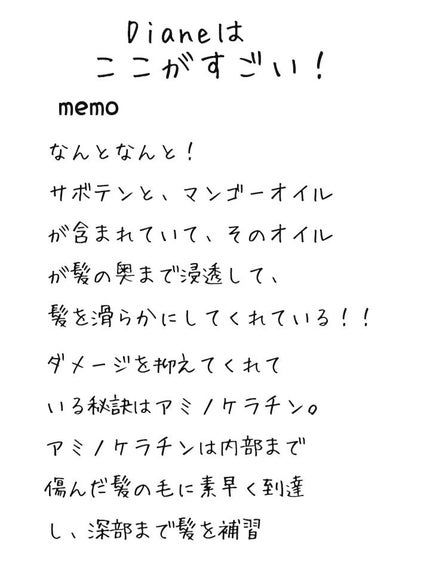 Dianeは
ここがすごい！
memo
なんとなんと！
サボテンと、マンゴーオイル
が含まれていて、そのオイル
が髪の奥まで浸透して、
髪を滑らかにしてくれている！！
ダメージを抑えてくれて
いる秘訣はアミノケラチン。
アミノケラチンは内部まで
傷んだ髪の毛に素早く到達
し、深部まで髪を補習